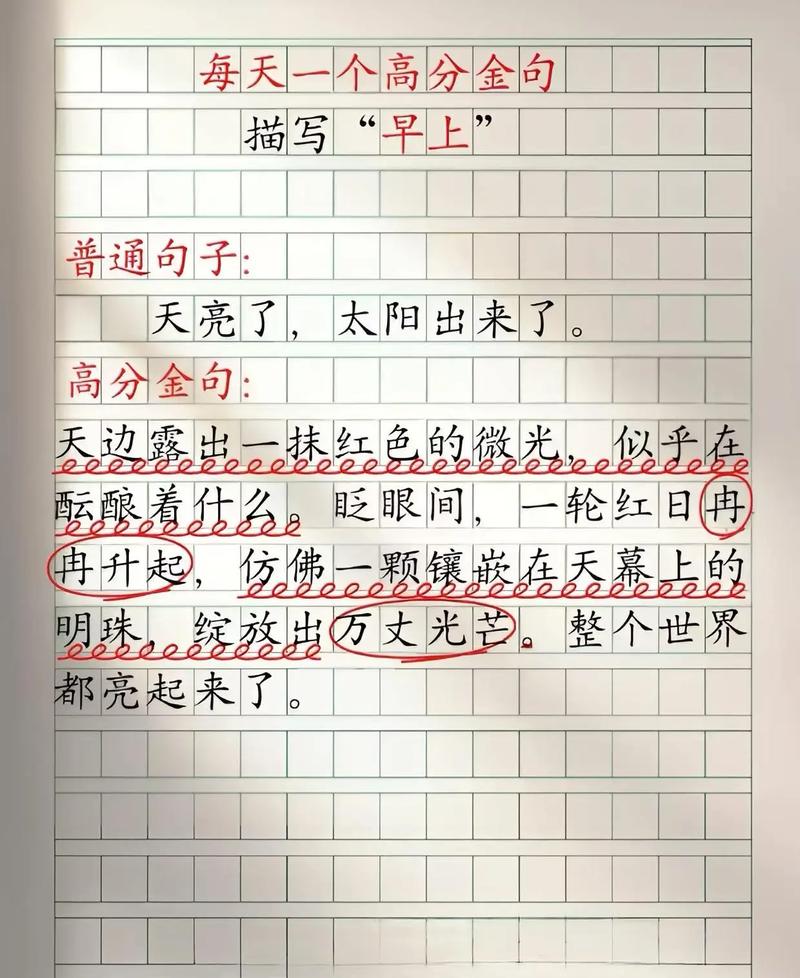 每天一个高分金句
描写“早上”
普通句子:
天亮了，太阳出来了。
高分金句:
天边露出一抹红色的微光，似乎在
酝酿着什么。眨眼间，一轮红日冉
冉升起，仿佛一颗镶嵌在天幕上的
明珠，绽放出万丈光芒。整个世界
都亮起来了。